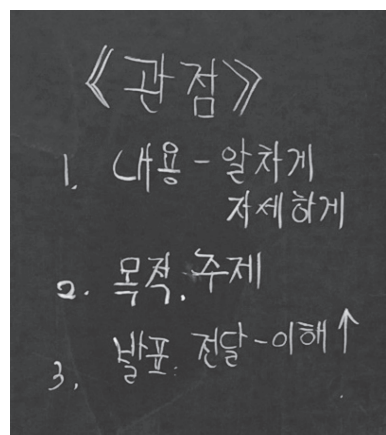 《관점》
1. 내용 - 알차게
자세하게
2. 목적. 주제
3. 발표. 전달 - 이해↑